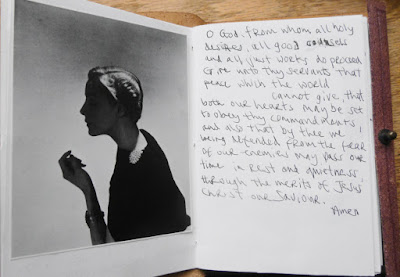 O God, from whom all holy
desires, all good counsels
and all just works do proceed
Give unto Thy servants that
peace which the world
cannot give, that
both our hearts may be set
to obey thy commandments,
and also that by thee we
being defended from the fear
of our enemies may pass our
time in rest and quietness
through the merits of Jesus
Christ our Saviour.
Amen